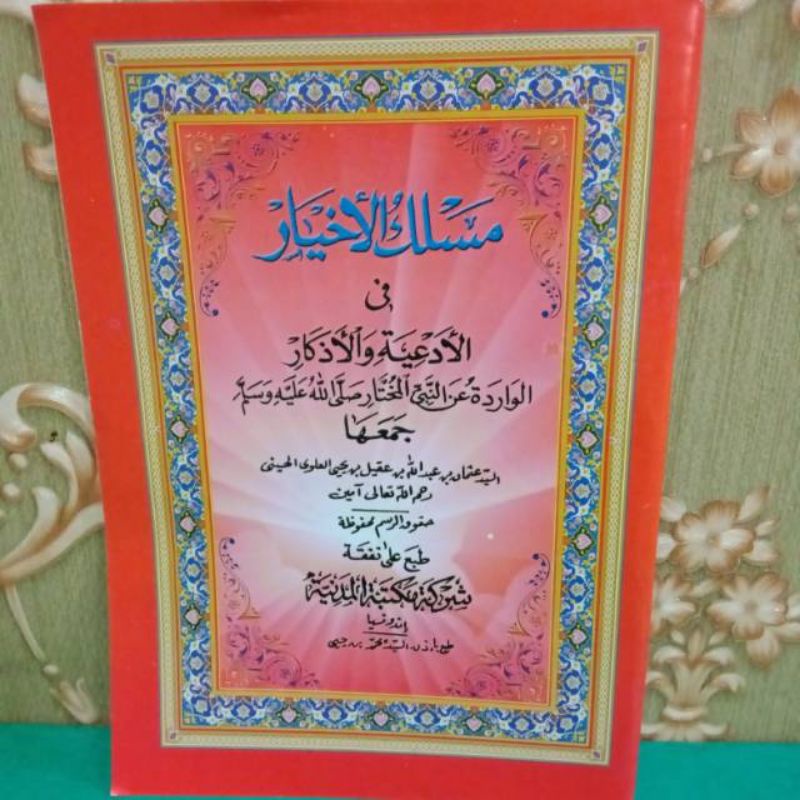 مَسْلَكُ الأَخْيَار
فى
الأَدْعِيَةِ وَالأَذْكَار
الوَارِدَةُ عَنِ النَّبِيِّ الْمُخْتَارِ صَلَّى اللهُ عَلَيْهِ وَسَلَّمَ
جَمَعَهَا
السيّد عثمان بن عبدالله بن عقيل بن يحيى العلوى الحسينى
رحمه الله تعالى آمين
حقوق الرسم محفوظة
طبع على نفقة
شركة مكتبة المدنية
إندونيسيا
طبع بإذن السيد محمد بن يحيى